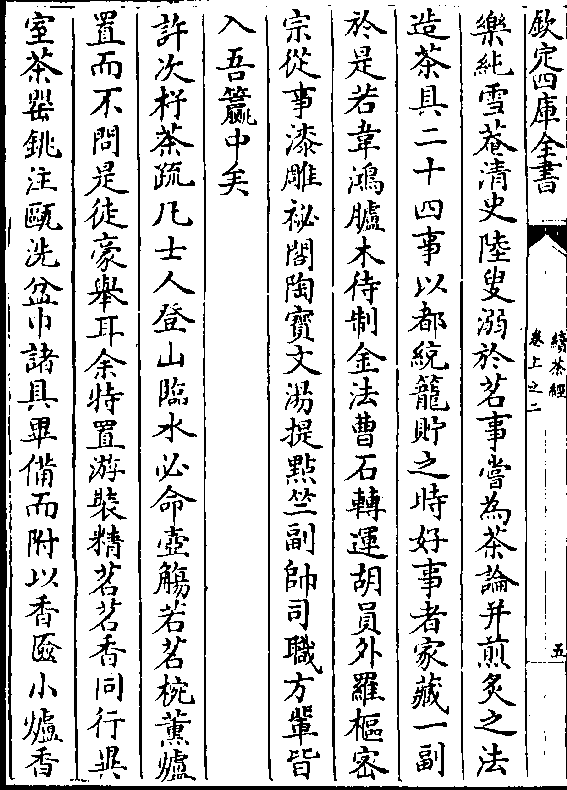 欽定四庫全書
續茶經
卷上之二
五
樂純雪菴清史陸叟溺於茗事嘗為茶論并煎炙之法
造茶具二十四事以都統籠貯之時好事者家藏一副
於是若韋鴻臚木待制金法曹石轉運胡員外羅樞密
宗從事漆雕祕閣陶寳文湯提點竺副帥司職方輩皆
入吾籯中矣
許次杼茶疏凡士人登山臨水必命壺觴若茗椀薫爐
置而不問是徒豪舉耳余特置游裝精茗茗香同行異
室茶罌銚注甌洗盆巾諸具畢備而附以香匳小爐香